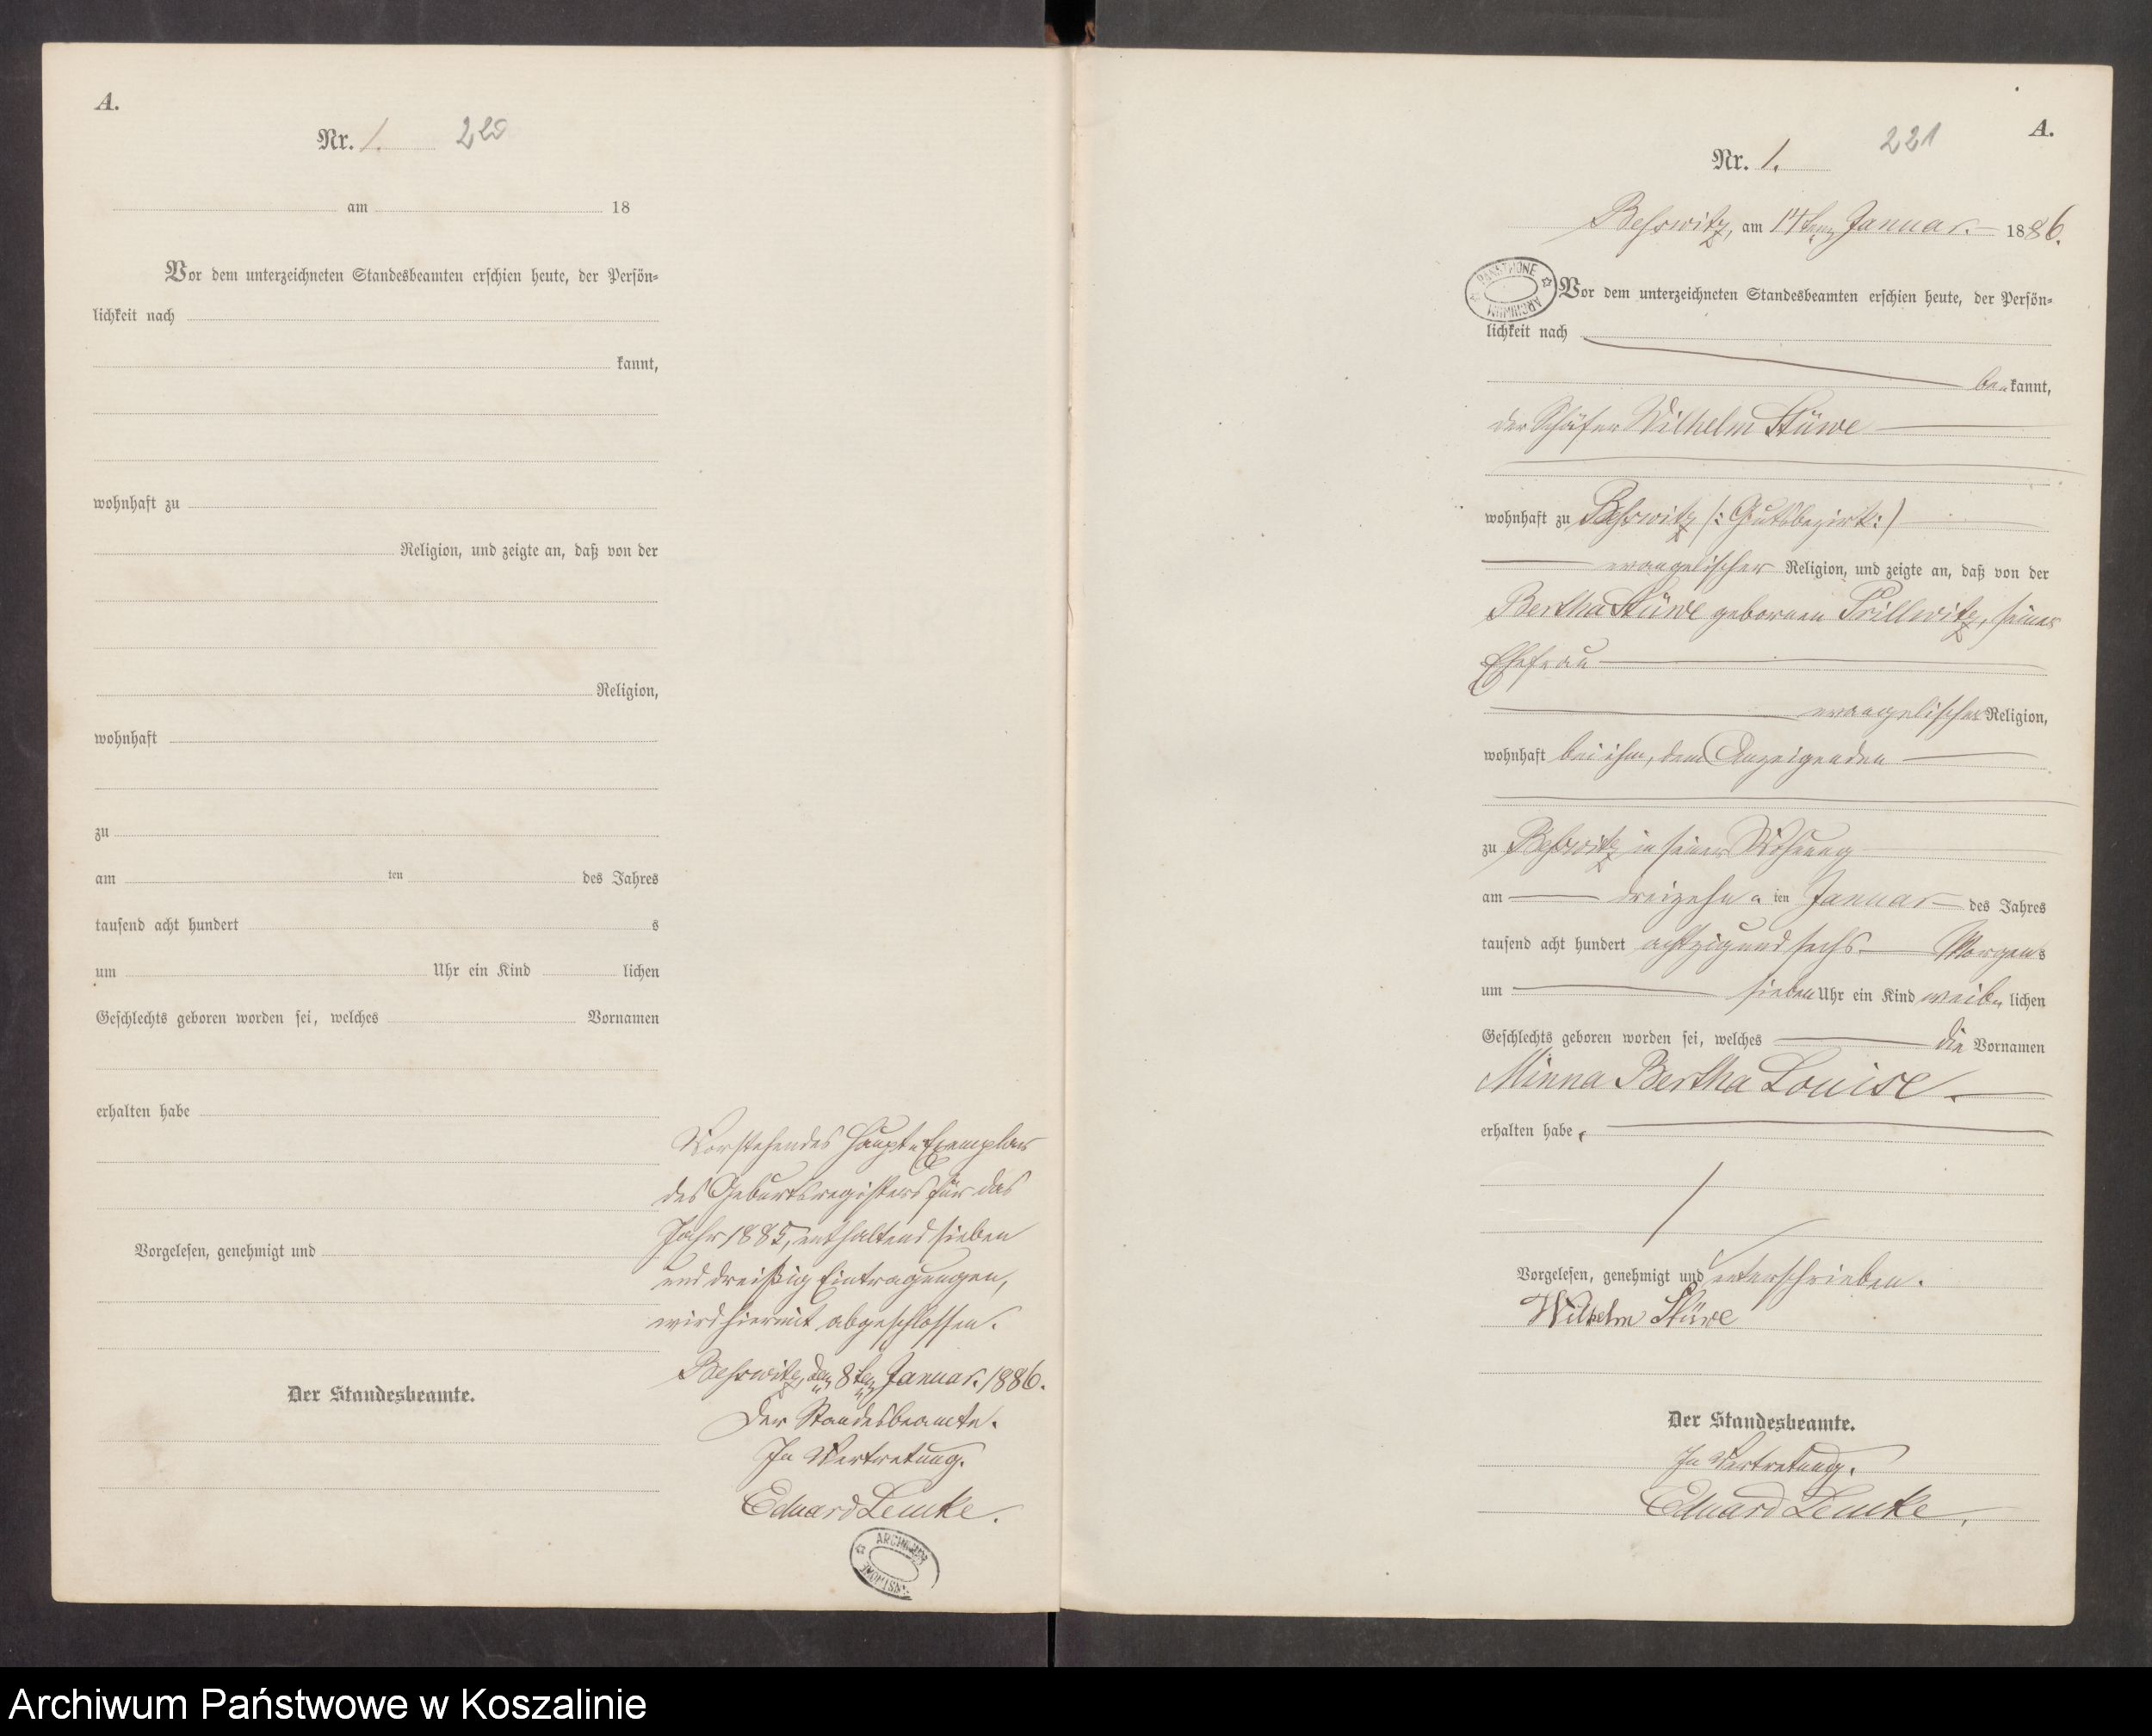 A.
Nr. 1. 220
am 18
Vor dem unterzeichneten Standesbeamten erschien heute, der Persön-
lichkeit nach
kannt,
wohnhaft zu
Religion, und zeigte an, daß von der
Religion,
wohnhaft
zu
am ten des Jahres
tausend acht hundert s
um Uhr ein Kind lichen
Geschlechts geboren worden sei, welches Vornamen
erhalten habe
Vorgelesen, genehmigt und
Der Standesbeamte.
Vorstehendes Haupt-Exemplar
des Geburtsregisters für das
Jahr 1885, enthaltend sieben
und dreißig Eintragungen,
wird hiermit abgeschlossen.
Beßwitz, den 8ten Januar. 1886.
Der Standesbeamte.
In Vertretung.
Eduard Lemke.
ARCHIWUM PAŃSTWOWE
A.
221
Nr. 1.
Beßwitz, am 14ten Januar. 1886.
PAŃSTWOWE ARCHIWUM
Vor dem unterzeichneten Standesbeamten erschien heute, der Persön-
lichkeit nach
be-kannt,
der Schäfer Wilhelm Stüwe
wohnhaft zu Beßwitz /: Gutsbezirk :/
evangelischer Religion, und zeigte an, daß von der
Bertha Stüwe gebornen Prillwitz, seiner
Ehefrau
evangelischer Religion,
wohnhaft bei ihm, dem Anzeigenden
zu Beßwitz in seiner Wohnung
am dreizehn-ten Januar des Jahres
tausend acht hundert achtzig und sechs. Morgens
um sieben Uhr ein Kind weib-lichen
Geschlechts geboren worden sei, welches die Vornamen
Minna Bertha Louise.
erhalten habe.
Vorgelesen, genehmigt und unterschrieben.
Wilhelm Stüwe
Der Standesbeamte.
In Vertretung.
Eduard Lemke.
Archiwum Państwowe w Koszalinie